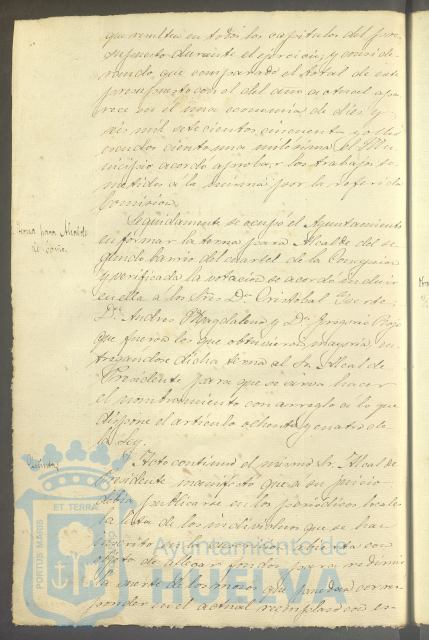 que resulten en todos los capitulos del pre
supuesto durante el ejercicio, y conside
rando que comparado el total de este
presupuesto con el del año actual apa
rece en el una economia de diez y
seis mil setecientos cincuenta y ocho
escudos ciento una milesimas el Mu
nicipio acordó aprobar los trabajos so
metidos á la misma por la referida
comision.
Terna para Alcalde
de barrio
Seguidamente se ocupó el Ayuntamiento
en formar la terna para Alcalde del se
gundo barrio del cuartel de la Concepcion
y verificada la votacion se acordó incluir
en ella a los Sres Dn. Cristobal
Dn. Andres Magdalena y Dn. Gregorio Rojo
que fueron los que obtuvieron mayoria, en
tregandose dicha terna al Sr. Alcalde
Presidente para que se sirva hacer
el nombramiento con arreglo á lo que
dispone el articulo ochenta y cuatro de
la Ley.
Quintas
Acto continuo el mismo Sr. Alcalde
Presidente manifestó que a su juicio
debia publicarse en los periodicos locales
la lista de los individuos que se han
suscrito en la abierta con
objeto de allegar fondos para redimir
la suerte de los mozos que puedan corres
ponder en el actual reemplazo con en
ET TERRÆ
PORTUS MARIS
CUSTODIA
Ayuntamiento de
HUELVA